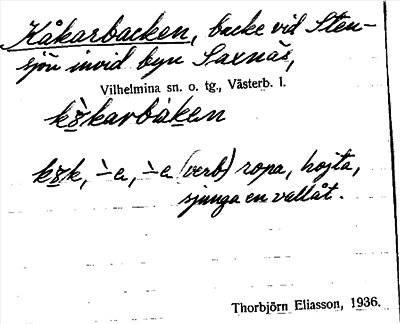 Kåkarbacken, backe vid Sten-
sjön invid byn Saxnäs,
Vilhelmina sn. o. tg., Västerb. l.
kɜ̀karbàken
kɜk, -̀a, -̀a (verb) ropa, hojta,
sjunga en vallåt.
Thorbjörn Eliasson, 1936.